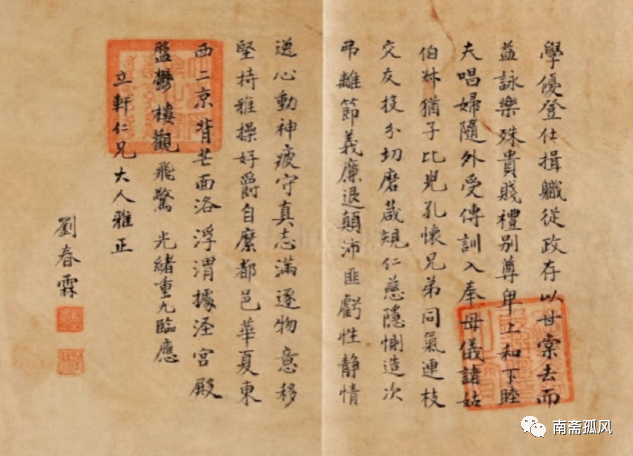 學優登仕攝職從政存以甘棠去而
益詠樂殊貴賤禮別尊卑上和下睦
夫唱婦隨外受傅訓入奉母儀諸姑
伯叔猶子比兒孔懷兄弟同氣連枝
交友投分切磨箴規仁慈隱惻造次
弗離節義廉退顛沛匪虧性靜情
逸心動神疲守真志滿逐物意移
堅持雅操好爵自縻都邑華夏東
西二京背芒面洛浮渭據涇宮殿
盤鬱樓觀飛驚光緒重九臨應
立軒仁兄大人雅正
劉春霖
南斋孤风